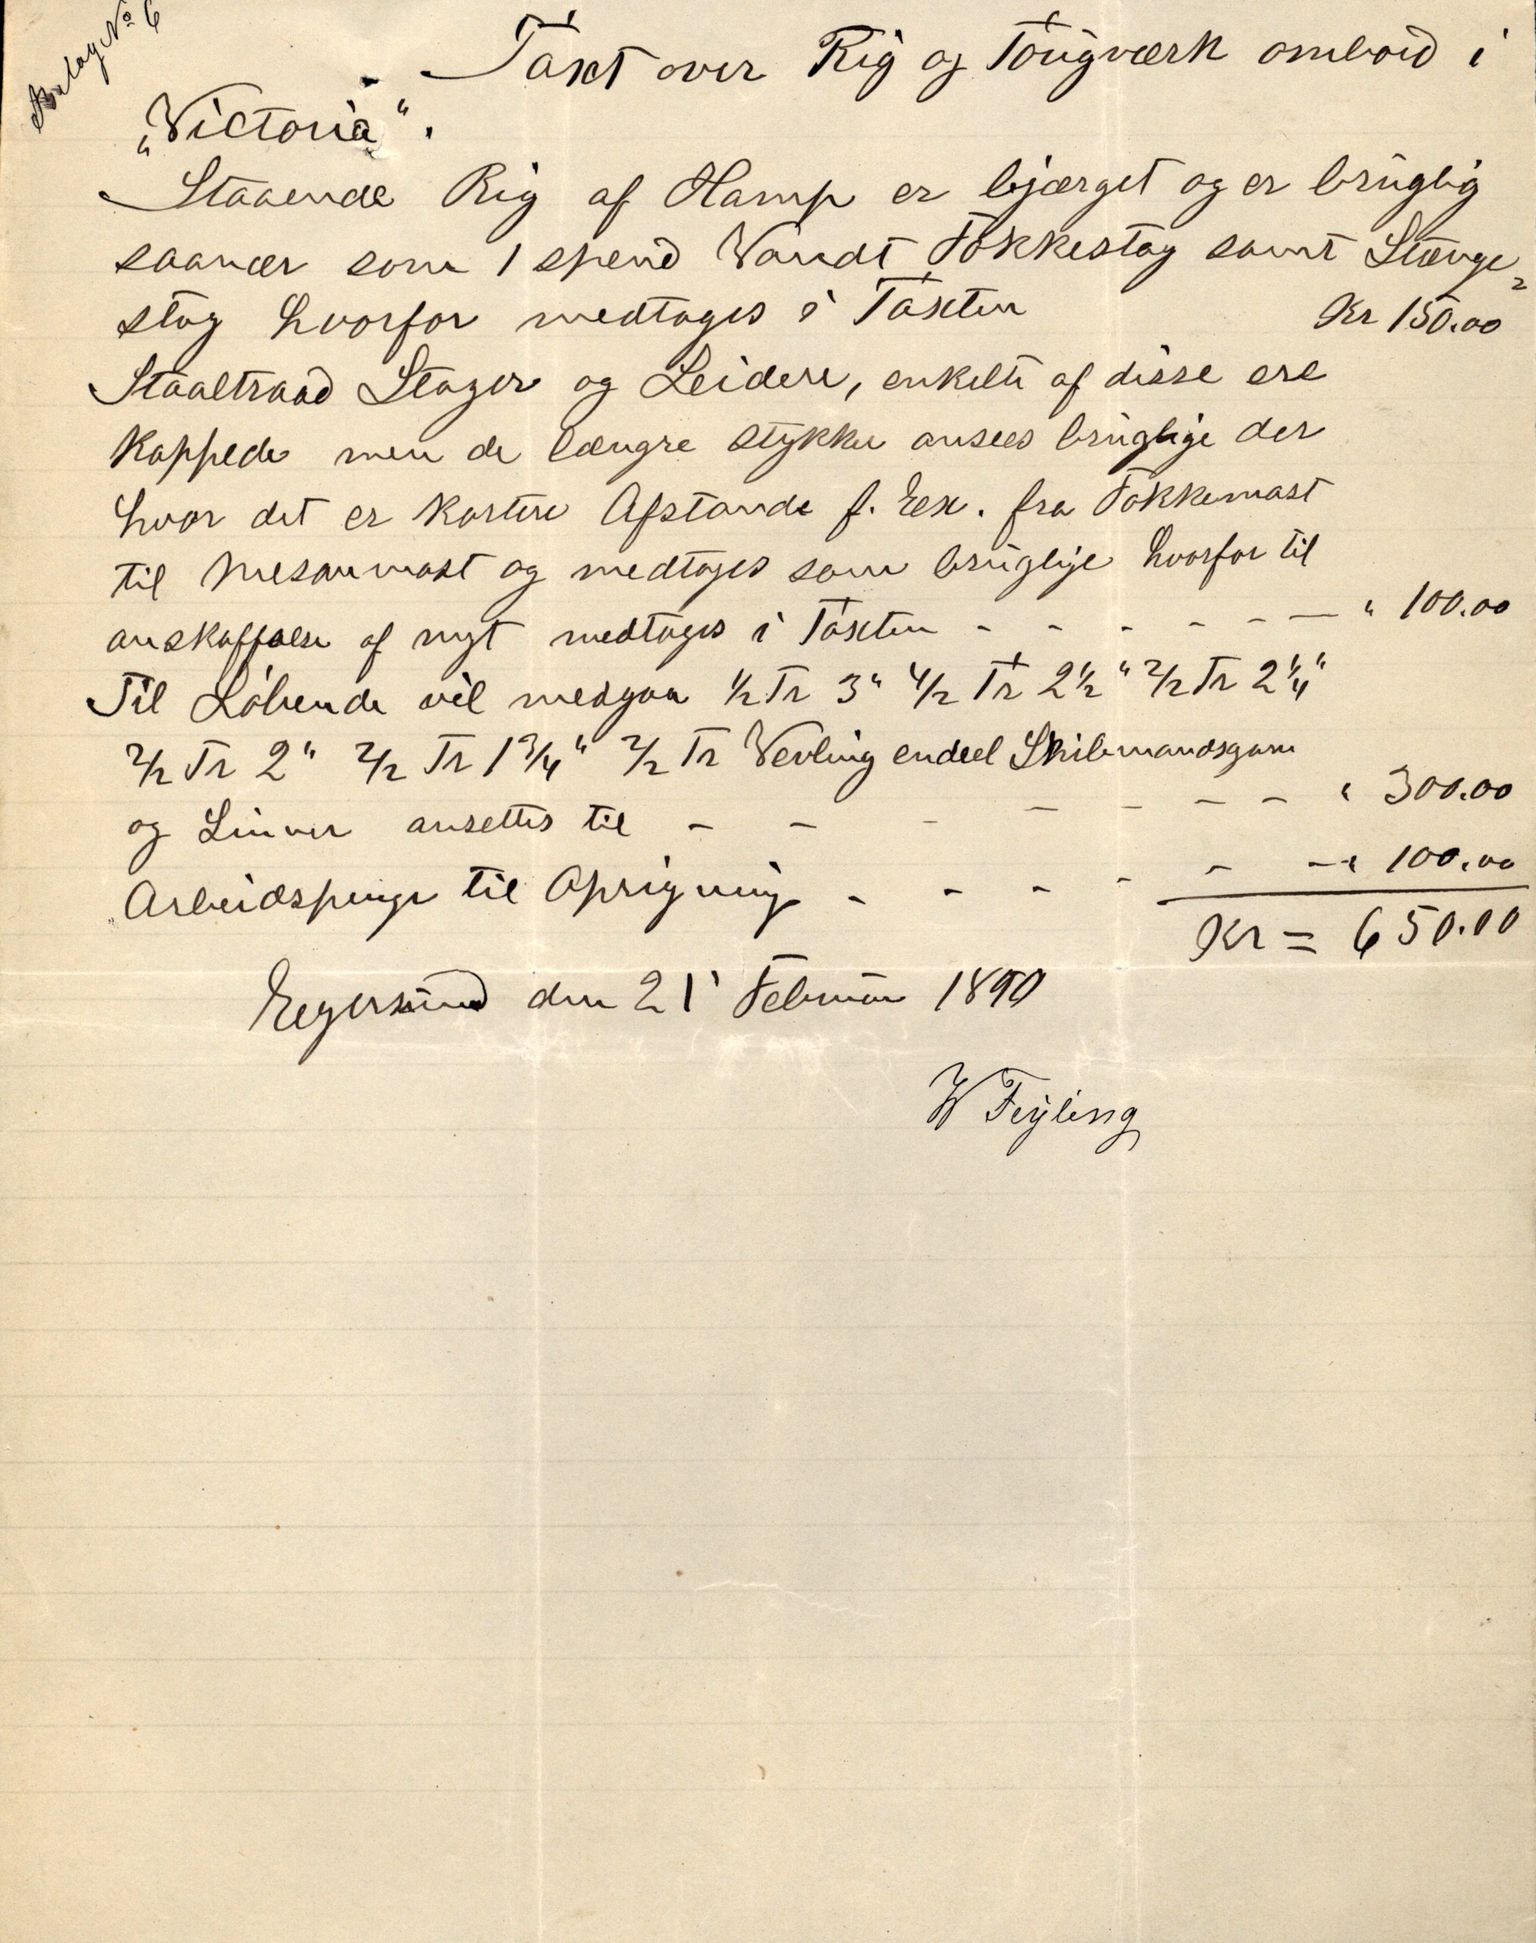 Bilag No 6
Taxt over Rig og Tougværk ombord i
„Victoria“.
Staaende Rig af Hamp er bjærget og er bruglig
saanær som 1 spend Vandt Fokkestag samt Stænge=
stag hvorfor medtages i Taxten Kr 150.00
Staaltraad Stager og Leidere, enkelte af disse ere
kappede men de længre stykker ansees bruglige der
hvor det er kortere Afstande f. Ex. fra Fokkemast
til Mesanmast og medtages som bruglige hvorfor til
anskaffelse af nyt medtages i Taxten - - - - - — " 100.00
Til Løbende vil medgaa 1/2 Tr 3" 4/2 Tr 2 1/2" 2/2 Tr 2 1/4"
2/2 Tr 2" 2/2 Tr 1 3/4" 2/2 Tr Vevling endeel Skibmandsgarn
og Linner ansettes til - - - - - - - " 300.00
Arbeidspenge til Oprigning - - - - - - " 100.00
Kr = 650.00
Egersund den 21' Februar 1890
W Feyling